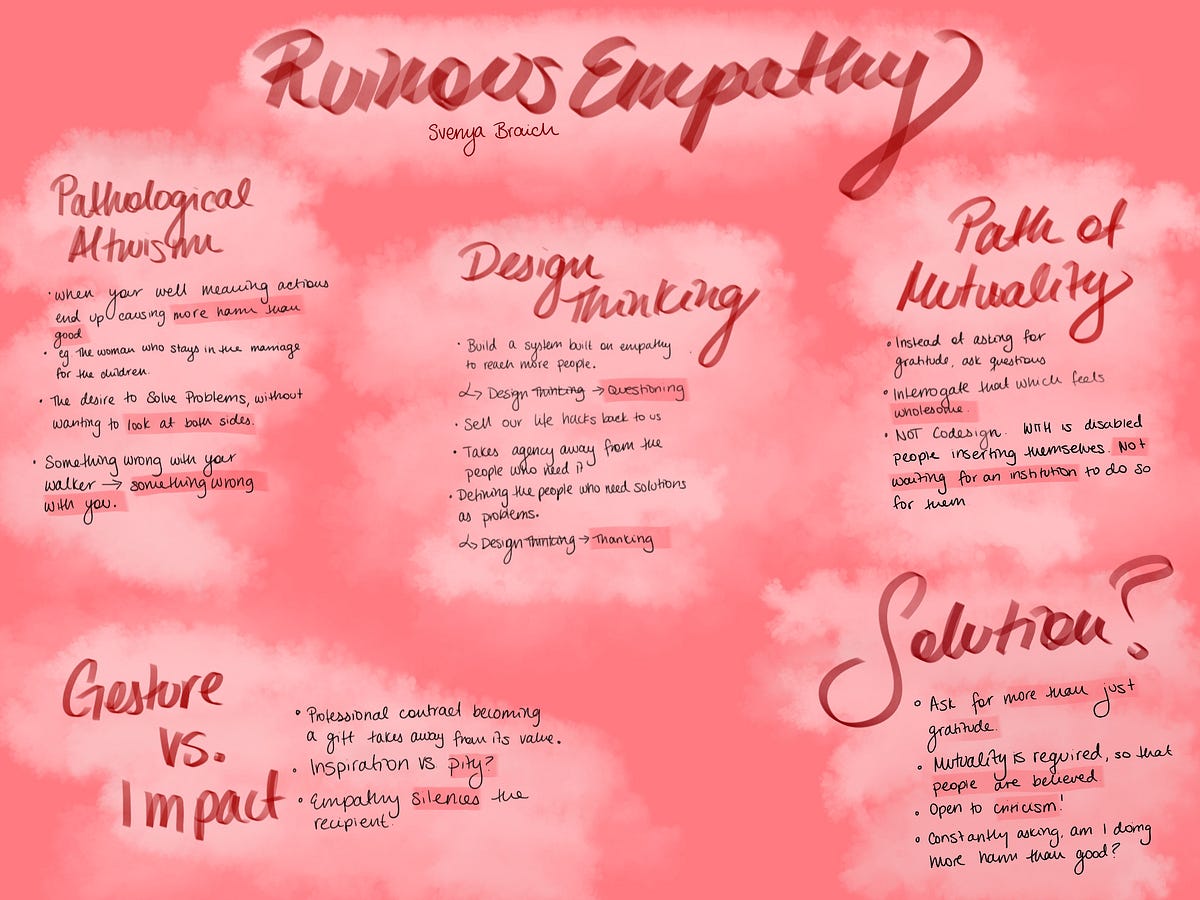 Ruinous Empathy
Svenya Braich
Pathological
Altruism
· when your well meaning actions
end up causing more harm than
good
· eg. The woman who stays in the marriage
for the children.
· The desire to solve Problems, without
wanting to look at both sides.
· Something wrong with your
walker → something wrong
with you.
Design
Thinking
· Build a system built on empathy
to reach more people.
↳ Design Thinking → Questioning
· Sell our life hacks back to us
· Takes agency away from the
people who need it
· Defining the people who need solutions
as problems.
↳ Design Thinking → Thanking
Path of
Mutuality
· Instead of asking for
gratitude, ask questions
· Interrogate that which feels
wholesome.
· NOT Codesign. WITH is disabled
people inserting themselves. Not
waiting for an institution to do so
for them
Gesture
vs.
Impact
· Professional contract becoming
a gift takes away from its value.
· Inspiration vs pity?
· Empathy silences the
recipient.
Solution?
· Ask for more than just
gratitude.
· Mutuality is required, so that
people are believed
· Open to criticism!
· Constantly asking, am I doing
more harm than good?